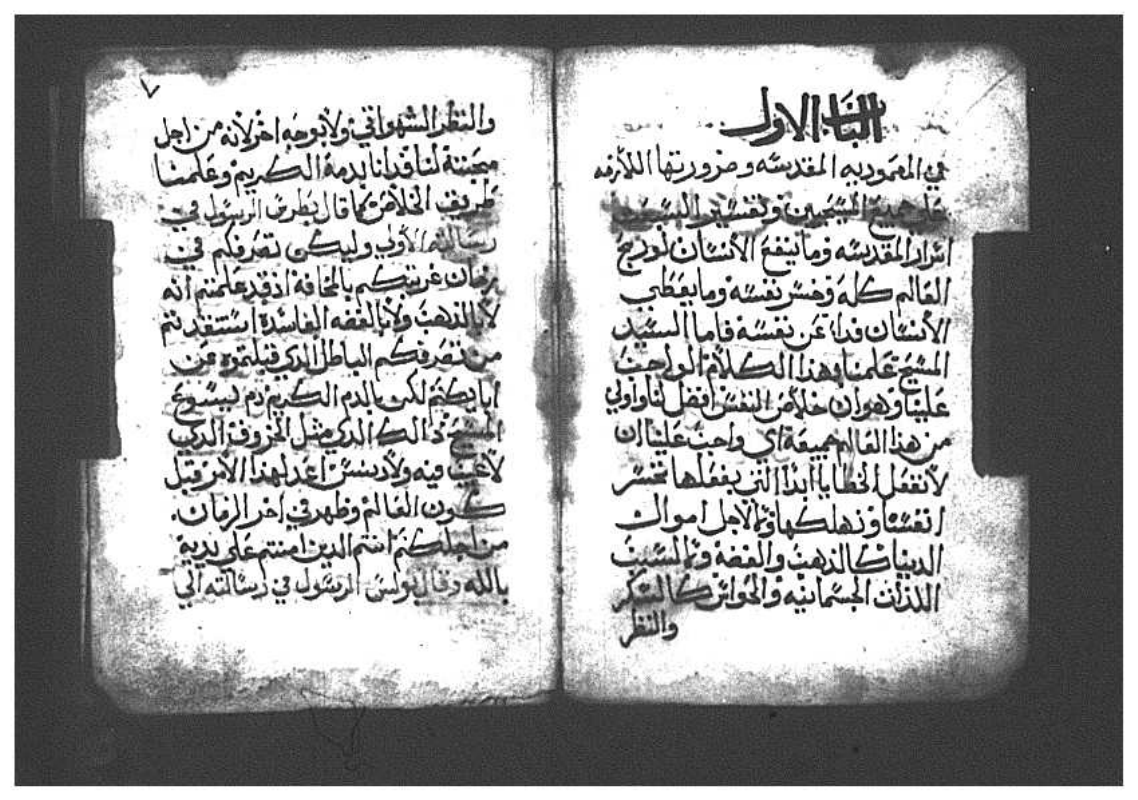 الباب الاول
في المعموديه المقدسه وضرورتها اللازمه
علي جميع المسيحيين وتفسير
اسرار المقدسه وما ينفع الانسان لو ربح
العالم كله وخسر نفسه وما يعطي
الانسان فداء عن نفسه فاما السيد
المسيح علمنا بهذا الكلام الواجب
علينا وهوان خلاص النفس افضل لنا واولي
من هذا العالم جميعه اي واجب علينا ان
لا نفعل الخطايا ابدا التي بفعلها نخسر
انفسنا ونهلكها لاجل اموال
الدنيا كالذهب والفضه السبب
اللذات الجسمانيه والحواس كالسكر
والنظر
٧
والنظر الشهواني ولا بوجه اخر لانه من اجل
محبته لنا فدانا بدمه الكريم وعلمنا
طريق الخلاص كما قال بطرس الرسول في
رسالته الاولي وليكن تصرفكم في
زمان غربتكم بالمخافه اذ قد علمتم انه
لا بالذهب ولا بالفضه الفاسده استنقدتم
من تصرفكم الباطل الدي قبلتموه عن
ابايكم لكن بالدم الكريم دم يسوع
المسيح ذالك الدي مثل الخروف الدي
لا عيب فيه ولا دنس اعد لهذا الامر قبل
كون العالم وظهر في اخر الزمان.
من اجلكم انتم الدين امنتم علي يديه
بالله وقال بولس الرسول في رسالته الي